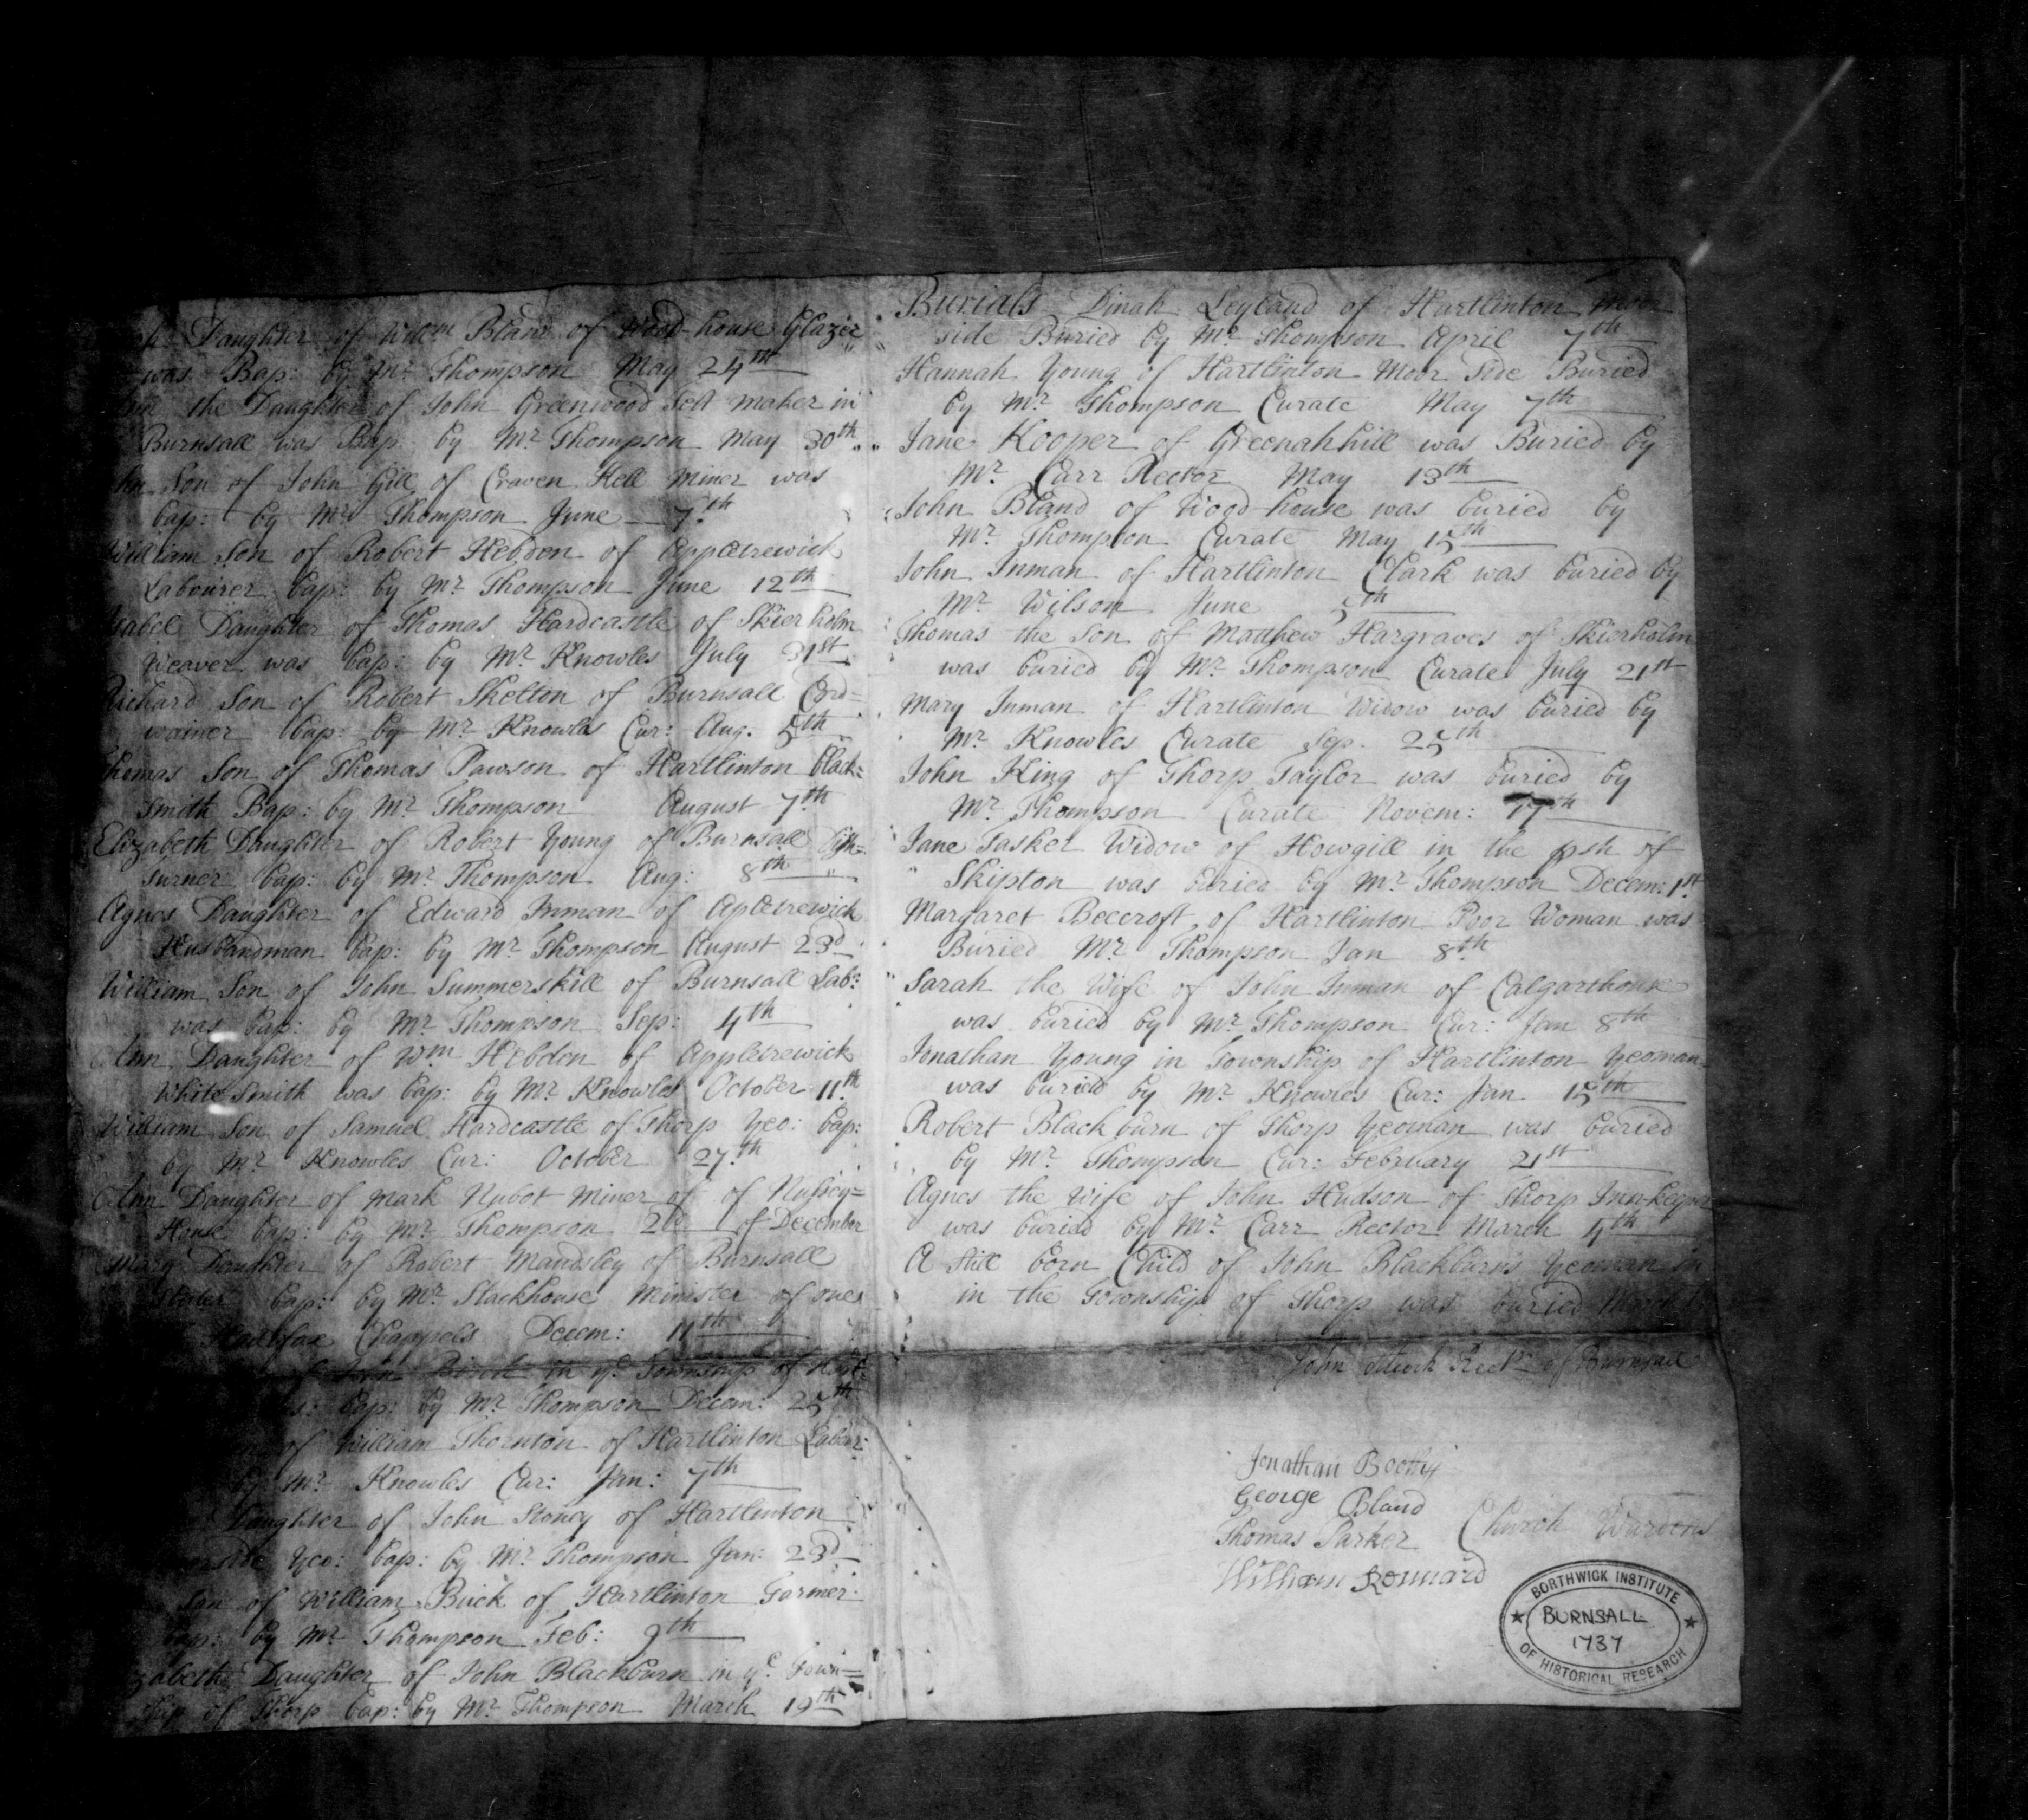 Daughter of Willm Bland of Wood house Glazier
was Bap: by Mr Thompson May 24th
Ann the Daughter of John Greenwood Felt maker in
Burnsall was Bap: by Mr Thompson May 30th
Son of John Gill of Craven Kell Miner was
bap: by Mr Thompson June 7th
William Son of Robert Hebden of Appletrewick
Labourer bap: by Mr Thompson June 12th
Isabel Daughter of Thomas Hardcastle of Skierholm
Weaver was bap: by Mr Knowles July 31st
Richard Son of Robert Skelton of Burnsall Cord=
wainer bap: by Mr Knowles Cur: Aug. 5th
Thomas Son of Thomas Pawson of Hartlinton black=
Smith Bap: by Mr Thompson August 7th
Elizabeth Daughter of Robert Young of Burnsall Dish=
turner bap: by Mr Thompson Aug: 8th
Agnes Daughter of Edward Inman of Apletrewick
Husbandman bap: by Mr Thompson August 23d
William Son of John Summerskill of Burnsall Lab:
was bap: by Mr Thompson Sep: 4th
Ann Daughter of Wm Hebden of Appletrewick
White Smith was bap: by Mr Knowles October 11th
William Son of Samuel Hardcastle of Thorp Yeo: bap:
by Mr Knowles Cur: October 27th
Ann Daughter of Mark Nubot Miner of of
House bap: by Mr Thompson of December
Mary Daughter of Robert Maudsley of Burnsall
bap: by Mr Stackhouse Minister of one
Hallifax Chappels Decem: 11th
in ye Township of
bap: by Mr Thompson Decem: 25th
of William Thornton of Hartlinton Labour:
by Mr Knowles Cur: Jan: 7th
Daughter of John Stoney of Hartlinton
Yeo: bap: by Mr Thompson Jan: 23d
Son of William Buck of Hartlinton Farmer
bap: by Mr Thompson Feb: 9th
Daughter of John Blackburn in ye Town=
ship of Thorp bap: by Mr Thompson March 19th
Burials Dinah Leyland of Hartlinton Moor
side Buried by Mr Thompson April 7th
Hannah Young of Hartlinton Moor Side Buried
by Mr Thompson Curate May 7th
Jane Kooper of Greenahhill was Buried by
Mr Carr Rector May 13th
John Bland of Wood house was buried by
Mr Thompson Curate May 15th
John Inman of Hartlinton Clark was buried by
Mr Wilson June 5th
Thomas the Son of Matthew Hargraves of Skierholm
was buried by Mr Thompson Curate July 21st
Mary Inman of Hartlinton Widow was buried by
Mr Knowles Curate Sep. 25th
John King of Thorp Taylor was buried by
Mr Thompson Curate Novem: 17th
Jane Tasker Widow of Howgill in the psh of
Skipton was buried by Mr Thompson Decem: 1st
Margaret Beecroft of Hartlinton Poor Woman was
Buried Mr Thompson Jan 8th
Sarah the Wife of John Inman of Calgarthouse
was buried by Mr Thompson Cur: Jan 8th
Jonathan Young in Township of Hartlinton Yeoman
was buried by Mr Knowles Cur: Jan 15th
Robert Blackburn of Thorp Yeoman was buried
by Mr Thompson Cur: February 21st
Agnes the Wife of John Hudson of Thorp Inn-keeper
was buried by Mr Carr Rector March 4th
A still born Child of John Blackburn's Yeoman in
in the Township of Thorp was buried March
John Rectr of Burnsall
Jonathan Boothy
George Bland
Thomas Parker Church Wardens
William
BORTHWICK INSTITUTE
BURNSALL
1737
OF HISTORICAL RESEARCH